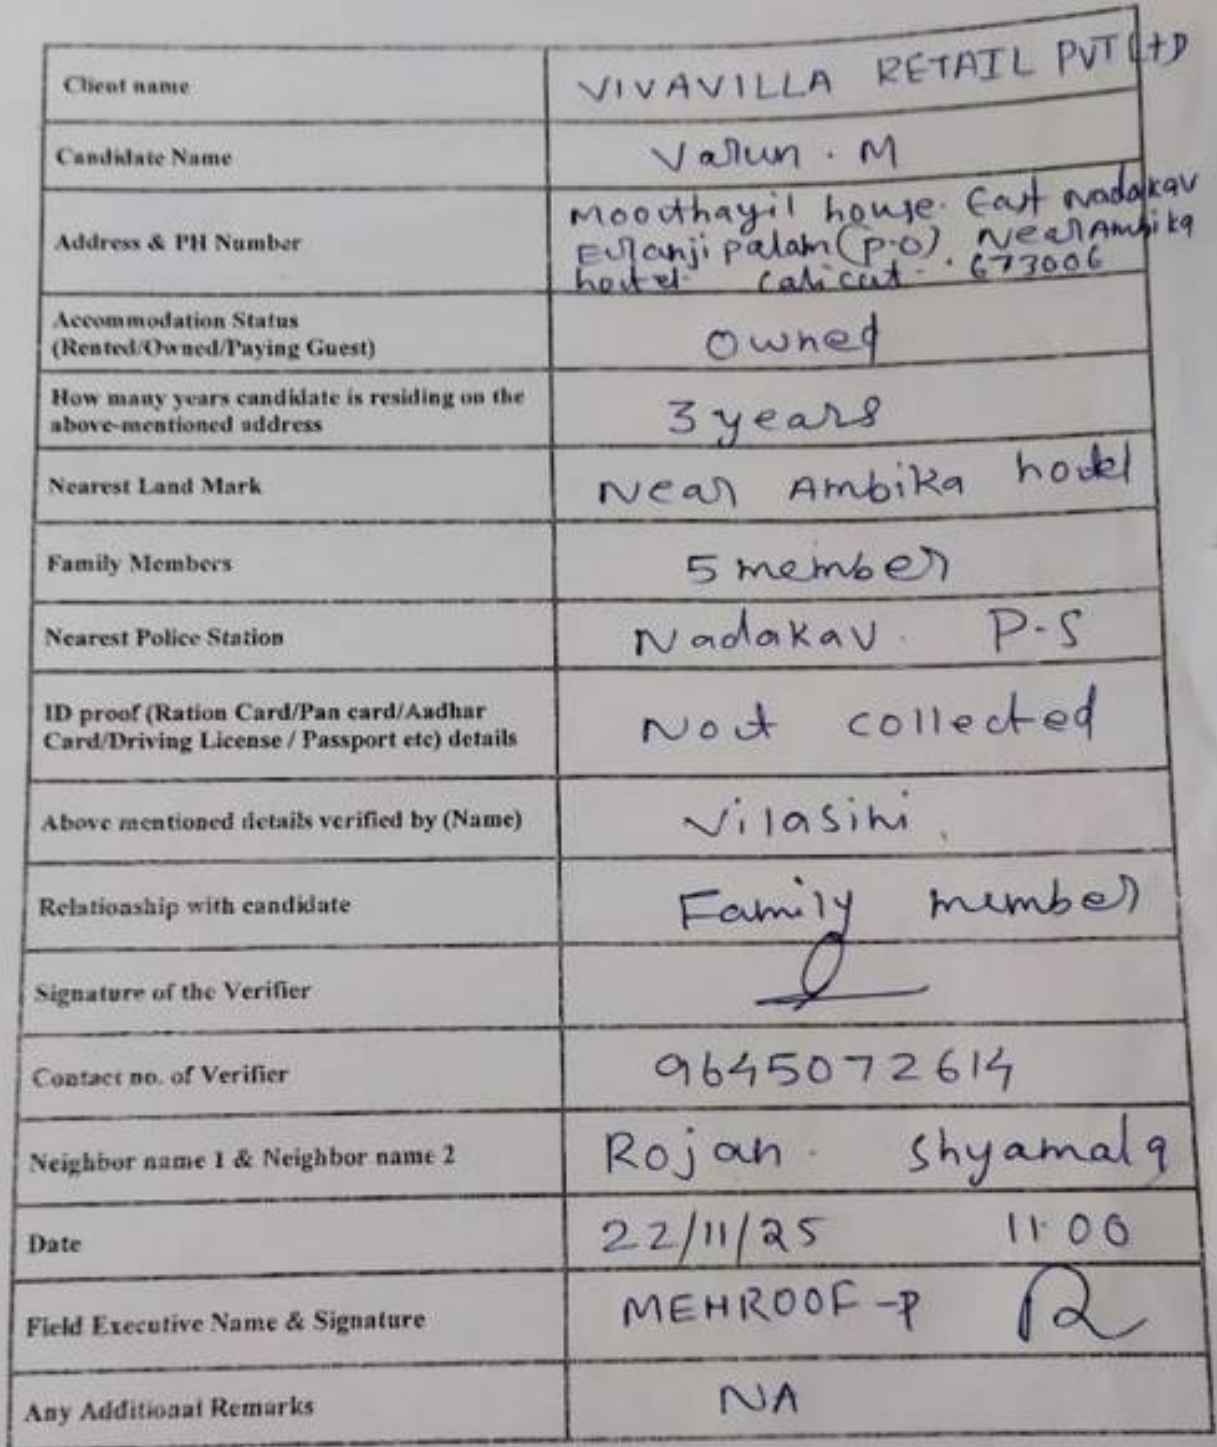 Client name VIVAVILLA RETAIL PVT LTD
Candidate Name Varun . M
Moothayil house. East Nadakav
Address & PH Number Eranjipalam (p.o) Near Ambika
hotel. Calicut . 673006
Accommodation Status
(Rented/Owned/Paying Guest) Owned
How many years candidate is residing on the
above-mentioned address 3 years
Nearest Land Mark Near Ambika hotel
Family Members 5 member
Nearest Police Station Nadakav. P.S
ID proof (Ration Card/Pan card/Aadhar
Card/Driving License / Passport etc) details Not collected
Above mentioned details verified by (Name) Vilasini
Relationship with candidate Family member
Signature of the Verifier
Contact no. of Verifier 9645072614
Neighbor name 1 & Neighbor name 2 Rojan. Shyamala
Date 22/11/25 11.00
Field Executive Name & Signature MEHROOF -P
Any Additional Remarks NA